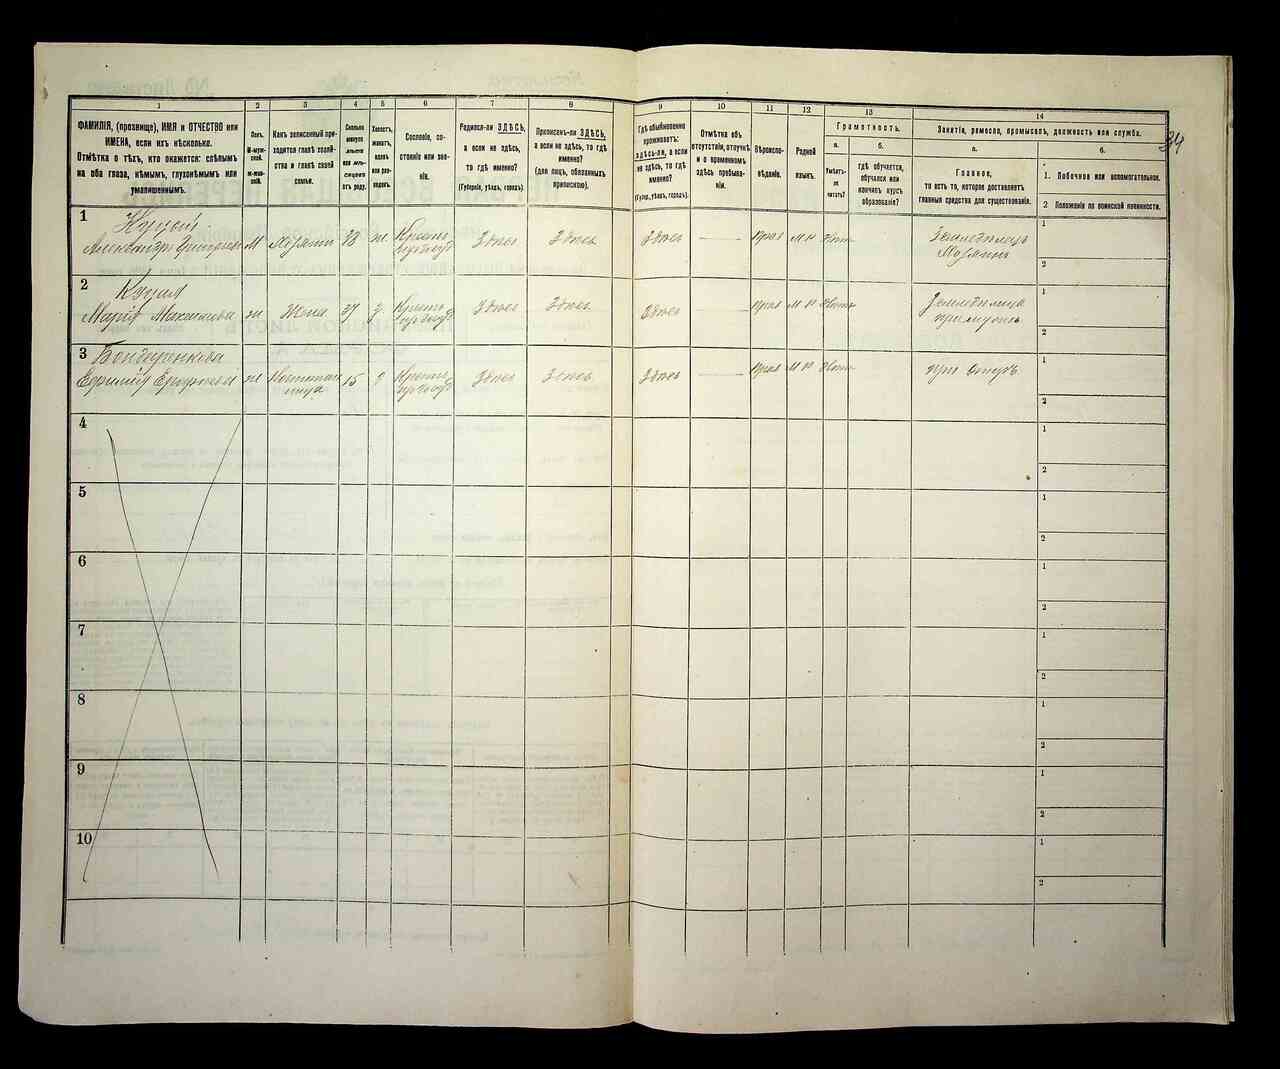 1 2 3 4 5 6 7 8 9 10 11 12 13 14
ФАМИЛІЯ, (прозвище), ИМЯ и ОТЧЕСТВО или
ИМЕНА, если ихъ нѣсколько.
Отмѣтка о тѣхъ, кто окажется: слѣпымъ
на оба глаза, нѣмымъ, глухонѣмымъ или
умалишеннымъ.
Полъ.
М-муж-
ской.
Ж-жен-
скій.
Какъ записанный при-
ходится главѣ хозяй-
ства и главѣ своей
семьи.
Сколько
минуло
лѣтъ
или мѣ-
сяцевъ
отъ роду.
Холостъ,
женатъ,
вдовъ
или раз-
веденъ.
Сословіе, со-
стояніе или зва-
ніе.
Родился-ли ЗДѢСЬ,
а если не здѣсь,
то гдѣ именно?
(Губернія, уѣздъ, городъ).
Приписанъ-ли ЗДѢСЬ,
а если не здѣсь, то гдѣ
именно?
(для лицъ, обязанныхъ
припискою).
Гдѣ обыкновенно
проживаетъ:
здѣсь-ли, а если
не здѣсь, то гдѣ
именно?
(Губер., уѣздъ, городъ).
Отмѣтка объ
отсутствіи, отлучкѣ
и о временномъ
здѣсь пребыва-
ніи.
Вѣроиспо-
вѣданіе.
Родной
языкъ.
Грамотность.
а.
Умѣетъ-
ли
читать?
б.
гдѣ обучается,
обучался или
кончилъ курсъ
образованія?
Занятіе, ремесло, промыселъ, должность или служба.
а.
Главное,
то есть то, которое доставляетъ
главныя средства для существованія.
б.
1. Побочное или вспомогательное.
2 Положеніе по воинской повинности.
34
1 Куцый
Александръ М Хозяинъ 38 ж. Здѣсь Здѣсь Здѣсь — Прав М Р Нѣтъ Земледѣлецъ 1
Хозяинъ
2
2 Куцая
Марія Максимова ж Жена 37 Здѣсь Здѣсь Здѣсь Прав М Р Нѣтъ 1
2
3 Бондаренкова
ж 15 Здѣсь Здѣсь Здѣсь — Прав М Р Нѣтъ при отцѣ 1
2
4 1
2
5 1
2
6 1
2
7 1
2
8 1
2
9 1
2
10 1
2